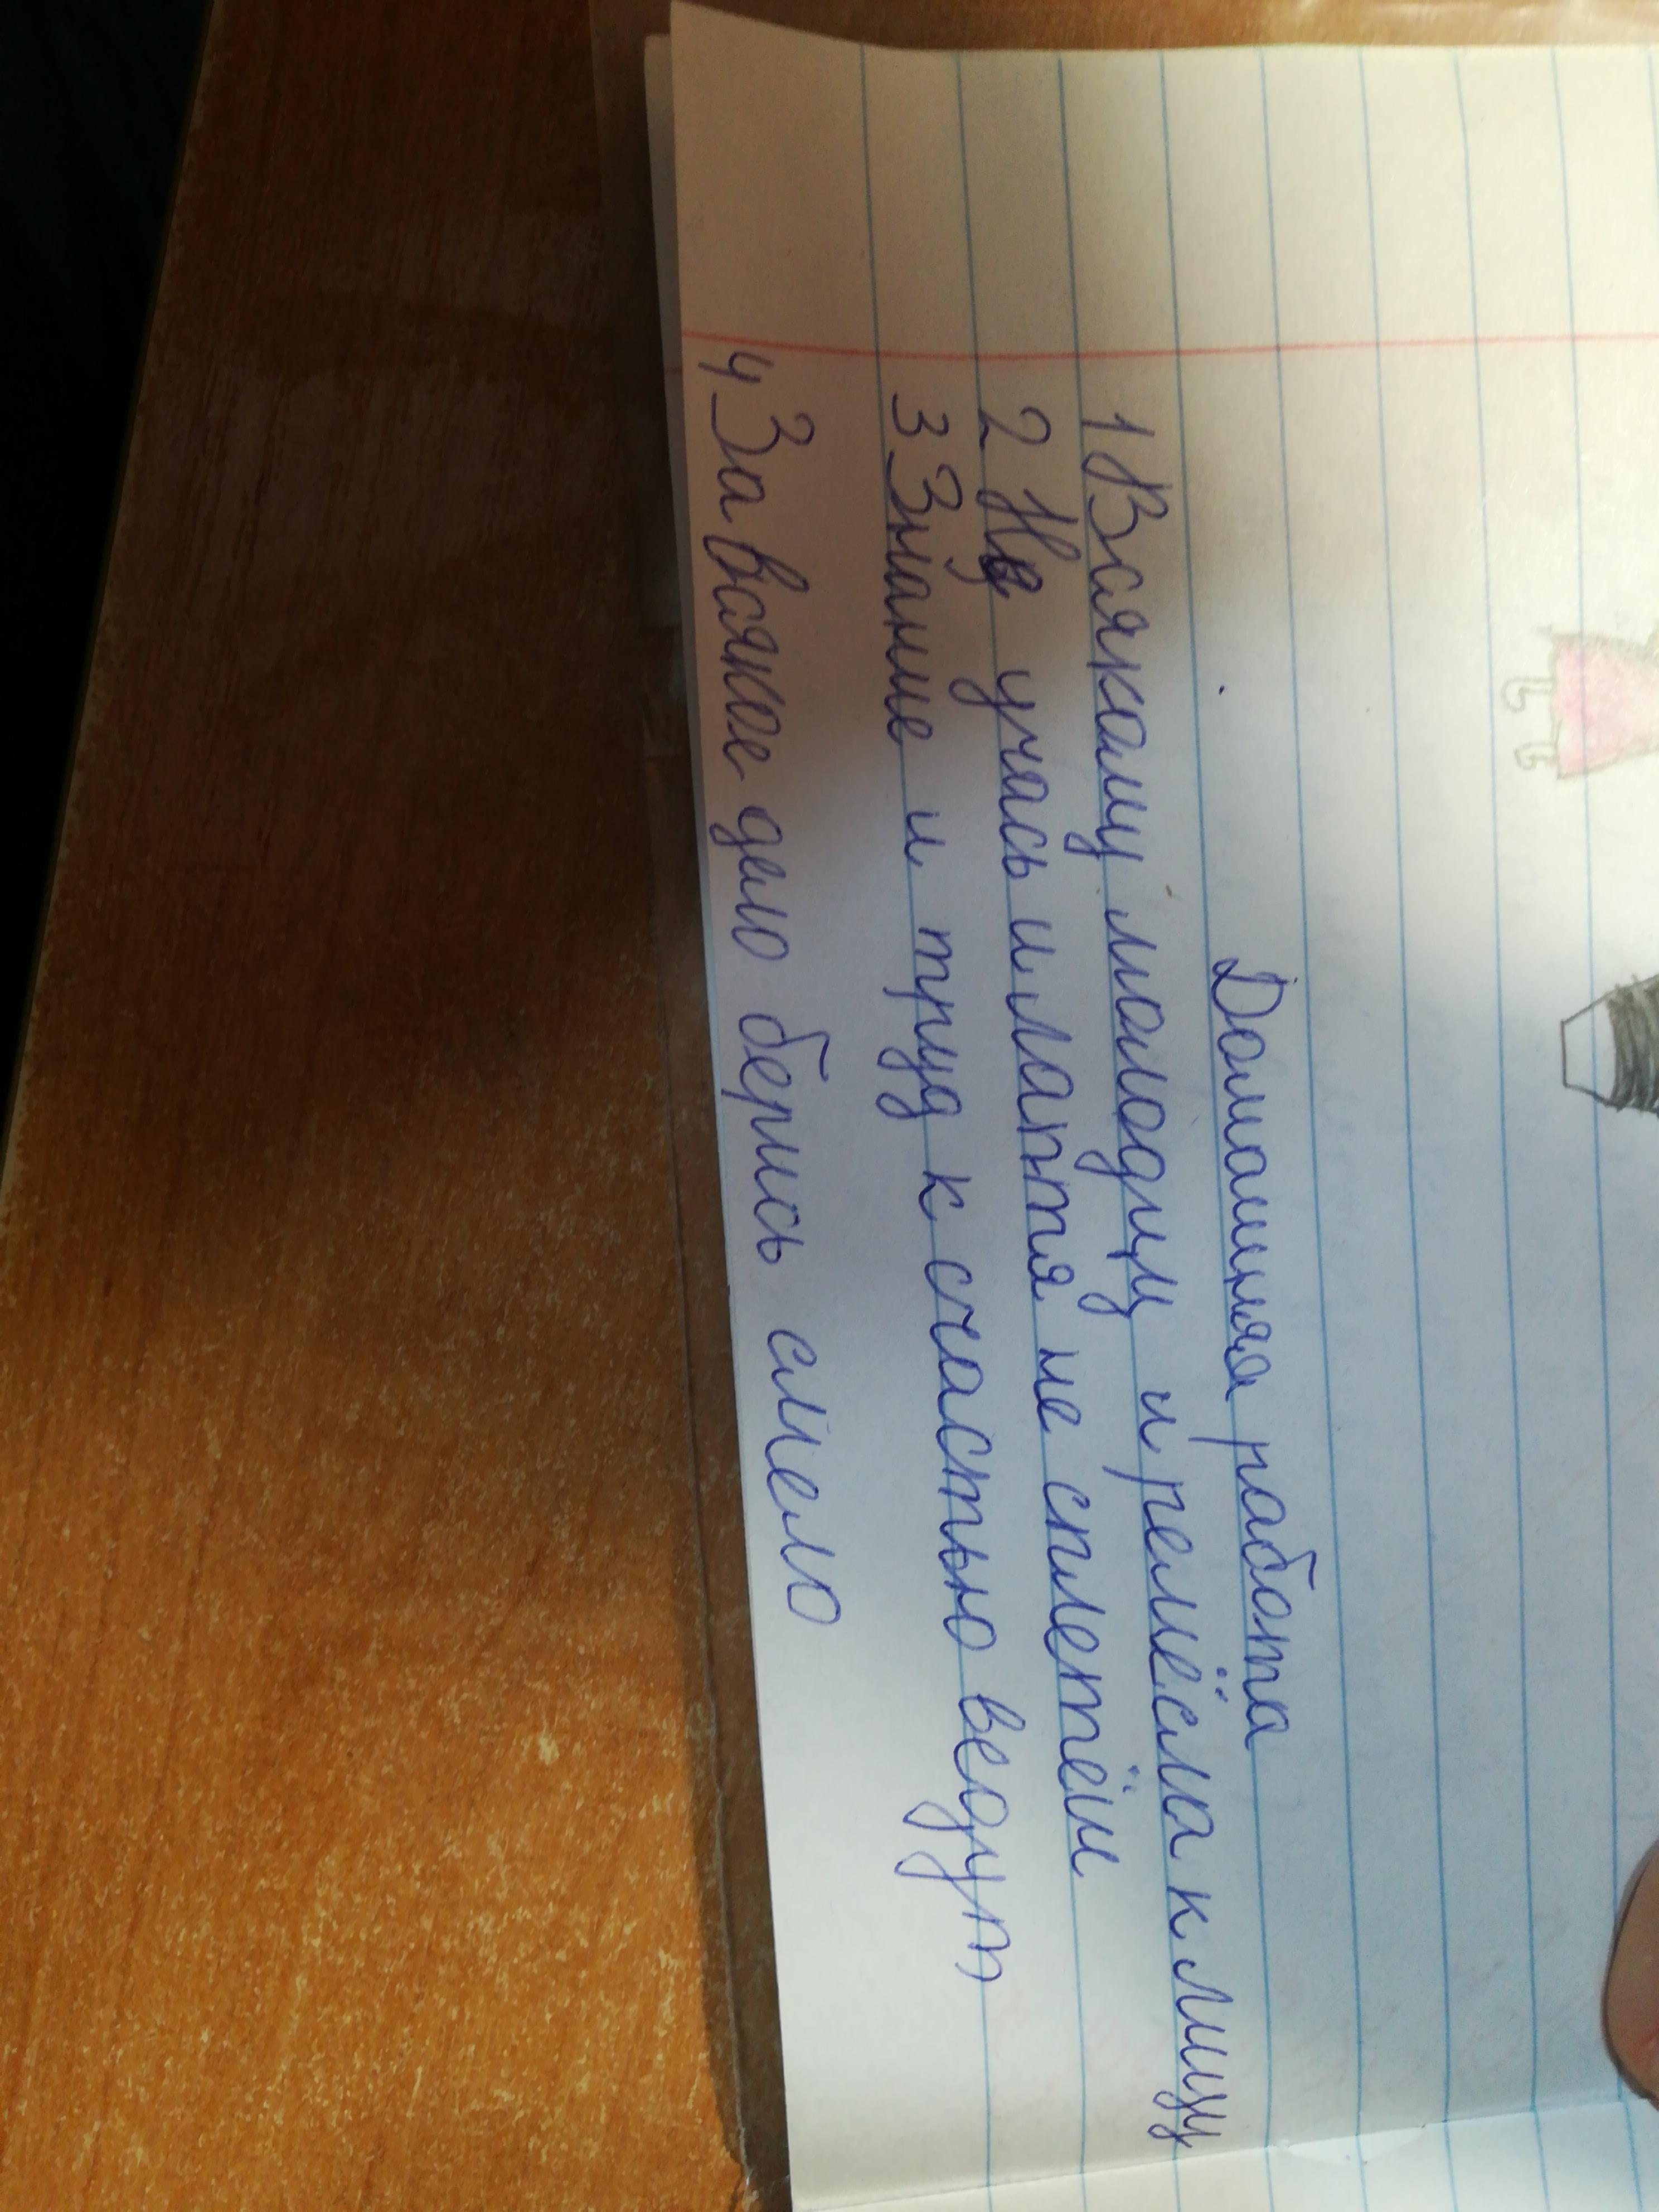 Домашняя работа
1 Всякаму молодцу и ремёсла к лицу
2 Не учась и лаптя не сплетём
3 Знание и труд к счастью ведут
4 За всякое дело берись смело